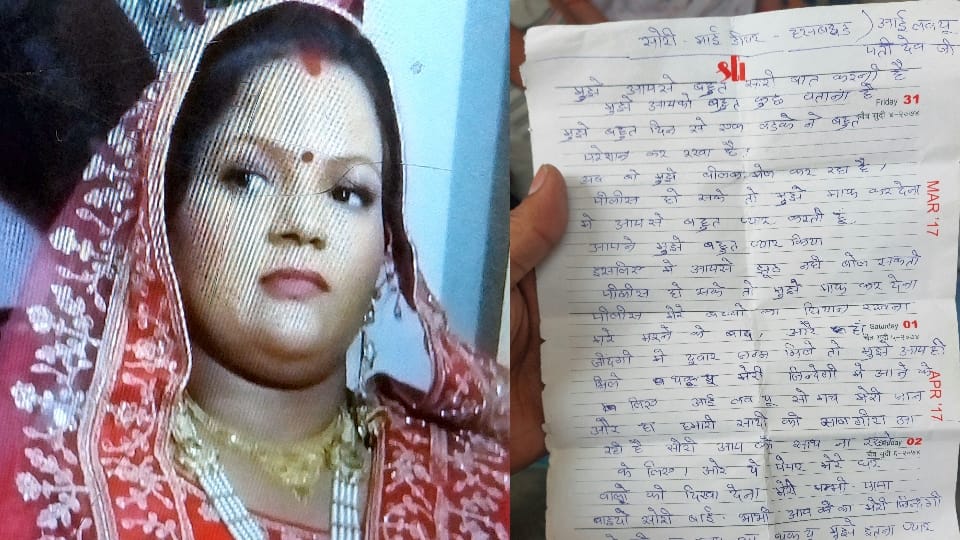 सोरी - माई डीयर - हसबेंड ) आई लव यू
पती देव जी
sh
मुझे आपसे बहुत सारी बात करनी है
मुझे आपको बहुत कुछ बताना है
Friday 31
मुझे बहुत दिन से एक लडके ने बहुत
परेशान कर रखा है।
अब वो मुझे बलेक मेल कर रहा है।
पीलीस हो सके तो मुझे माफ कर देना
MAR '17
मे आपसे बहुत प्यार करती हूं
आपने मुझे बहुत प्यार किया
इसलिए मे आपसे झूठ नही बोल सकती
पीलीस हो सके तो मुझे माफ कर देना
पीलीस मेरे बच्चो का ध्यान रखना
मेरे मरने के बाद और हां
Saturday 01
जीदगी मे दुबार जनम मिले तो मुझे आप ही
मिले थैंक्यू यू मेरी जिन्देगी मे आने के
APR '17
लिए आई लव यू सो मच मेरी जान
और हा हमारी सादी की सालगीरा आ
रही है सोरी आप के साथ ना रहने
02
के लिए। और ये पेपर मेरे घर
वालो को दिखा देना मेरी मम्मी पापा
सोरी भाई - भाभी आप को मेरी जिन्दगी
मुझे इतना प्यार